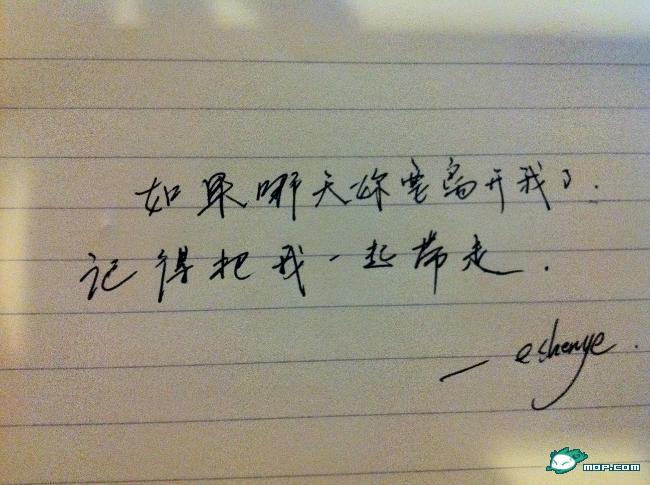 如果哪天妳要离开我了.
记得把我一起带走.
— eshenye.
MOP.COM